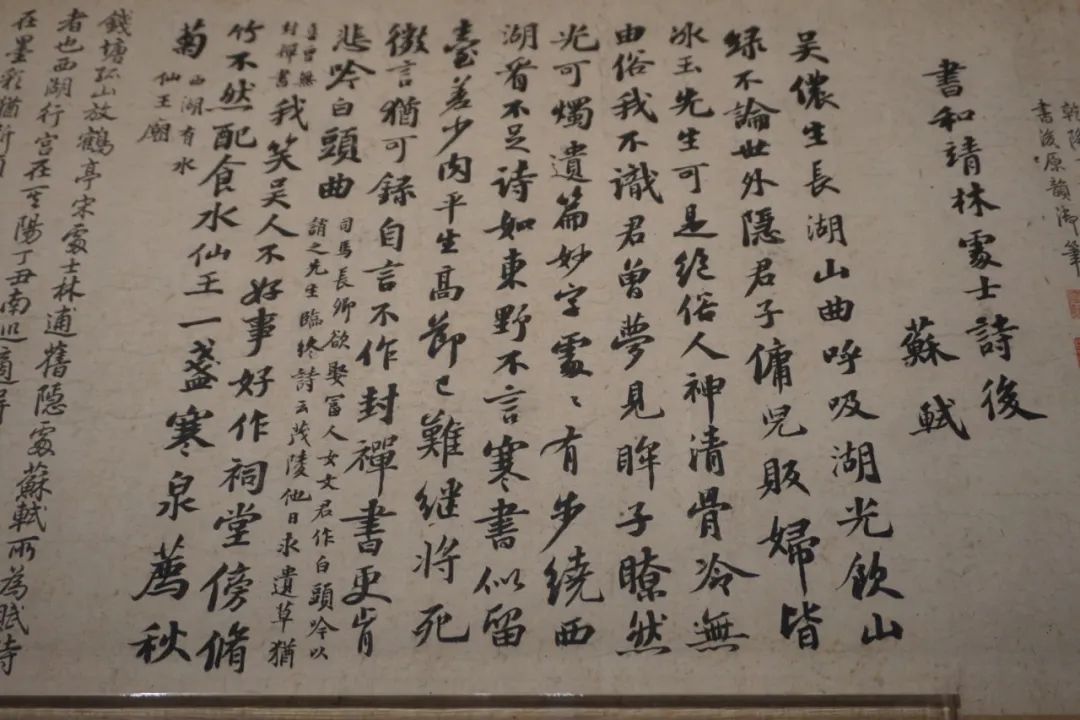 乾隆
書後原韻御筆
書和靖林處士詩後
蘇軾
吴儂生長湖山曲呼吸湖光飲山
緑不論世外隱君子傭兒販婦皆
冰玉先生可是絕俗人神清骨冷無
由俗我不識君曽夢見眸子瞭然
光可燭遺篇妙字處〻有步繞西
湖看不足詩如東野不言寒書似留
臺差少肉平生高節已難継將死
微言猶可録自言不作封禪書更肯
悲吟白頭曲
司馬長卿欲娶富人女文君作白頭吟以
誚之先生臨終詩云茂陵他日求遺草猶
喜曾無
封禪書
我笑吴人不好事好作祠堂傍脩
竹不然配食水仙王一盞寒泉薦秋
菊
西湖有水
仙王廟
錢塘孤山放鶴亭宋處士林逋舊隱處蘇軾所為賦詩
者也西湖行宫在其陽丁丑南巡適得
在墨彩猶新